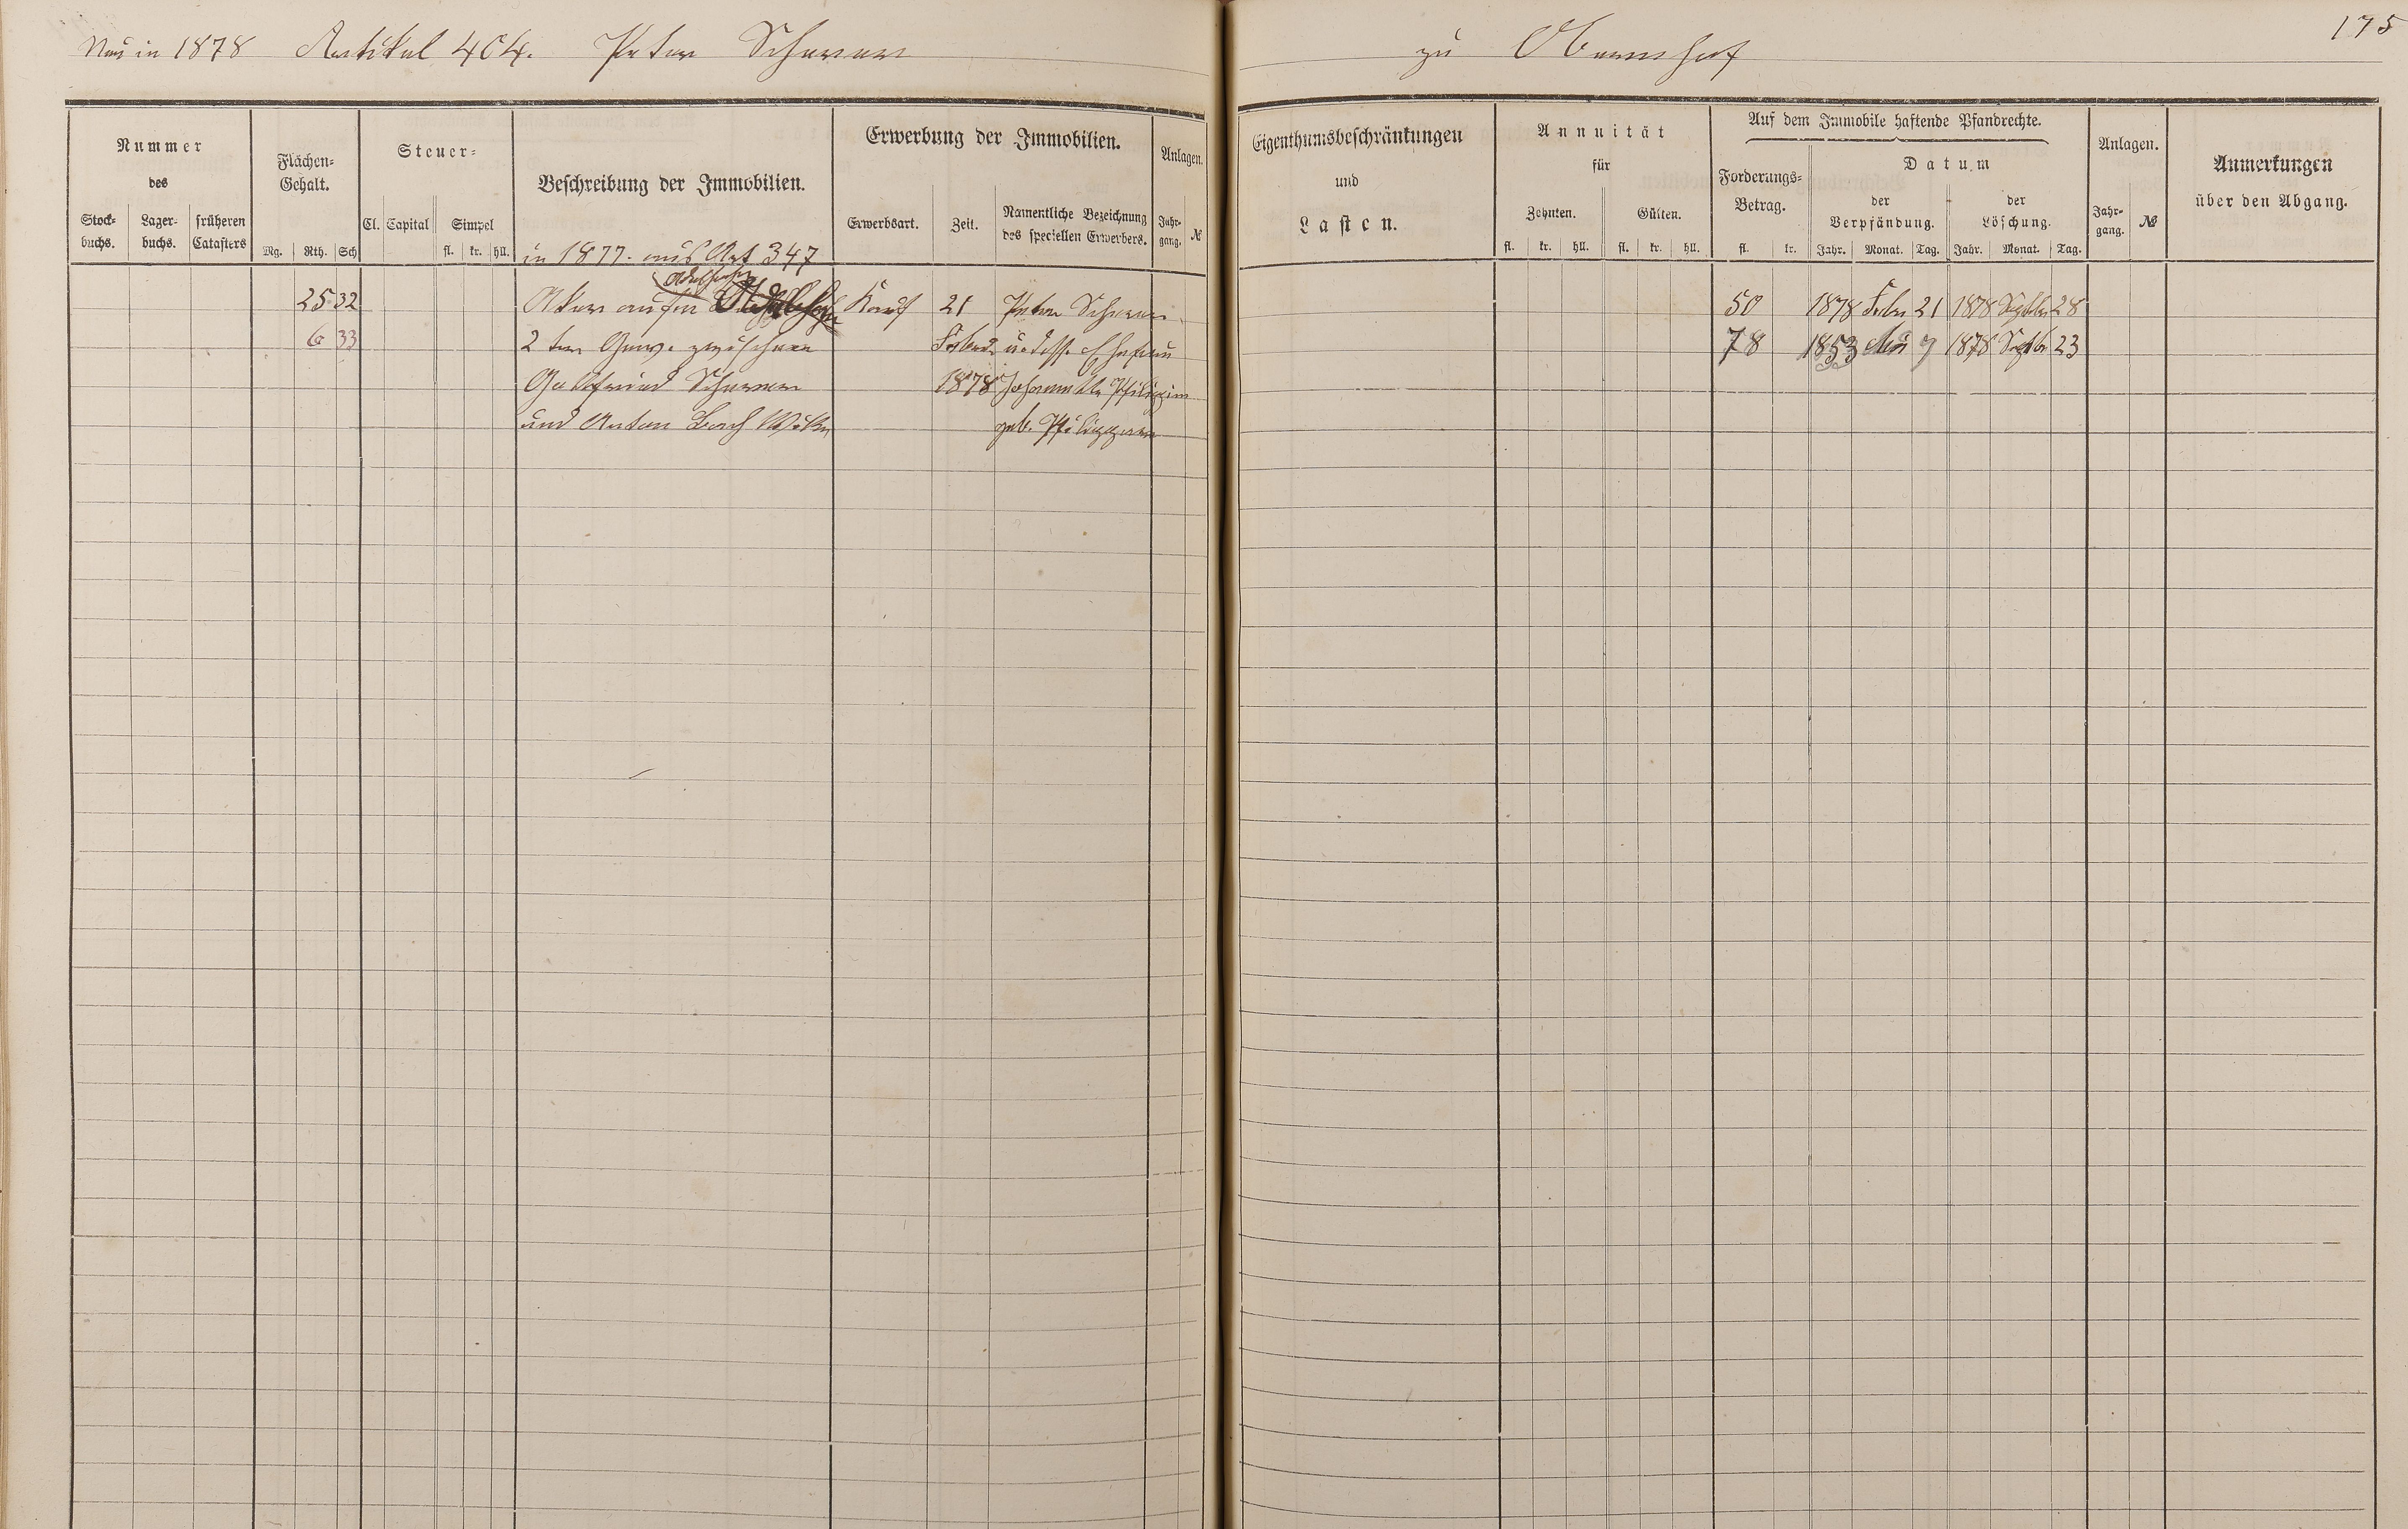 Neu in 1878 Artikel 404. Peter Scherer zu Obernhof
175
Nummer
des
Stock-
buchs.
Lager-
buchs.
früheren
Catasters
Flächen-
Gehalt.
Mg. Rth. Sch
Steuer-
Cl. Capital Simpel
fl. kr. hll.
Beschreibung der Immobilien.
in 1877. aus Art 347
Erwerbung der Immobilien.
Erwerbsart. Zeit. Namentliche Bezeichnung
des speciellen Erwerbers.
Anlagen.
Jahr-
gang. №
Eigenthumsbeschränkungen
und
Lasten.
Annuität
für
Zehnten. Gülten.
fl. kr. hll. fl. kr. hll.
Auf dem Immobile haftende Pfandrechte.
Forderungs-
Betrag.
fl. kr.
Datum
der
Verpfändung.
Jahr. Monat. Tag.
der
Löschung.
Jahr. Monat. Tag.
Anlagen.
Jahr-
gang. №
Anmerkungen
über den Abgang.
25 32 Acker auf'm Kauf 21 Peter Scherer 50 1878 Febr 21 1878 Septbr 28
6 33 2 ter Gew. zwischen Febr. u. dess. Ehefrau 78 1853 Mai 7 1878 Septbr 23
Gottfried Scherer 1878 Johannette
und Anton Bach Wtw. geb.